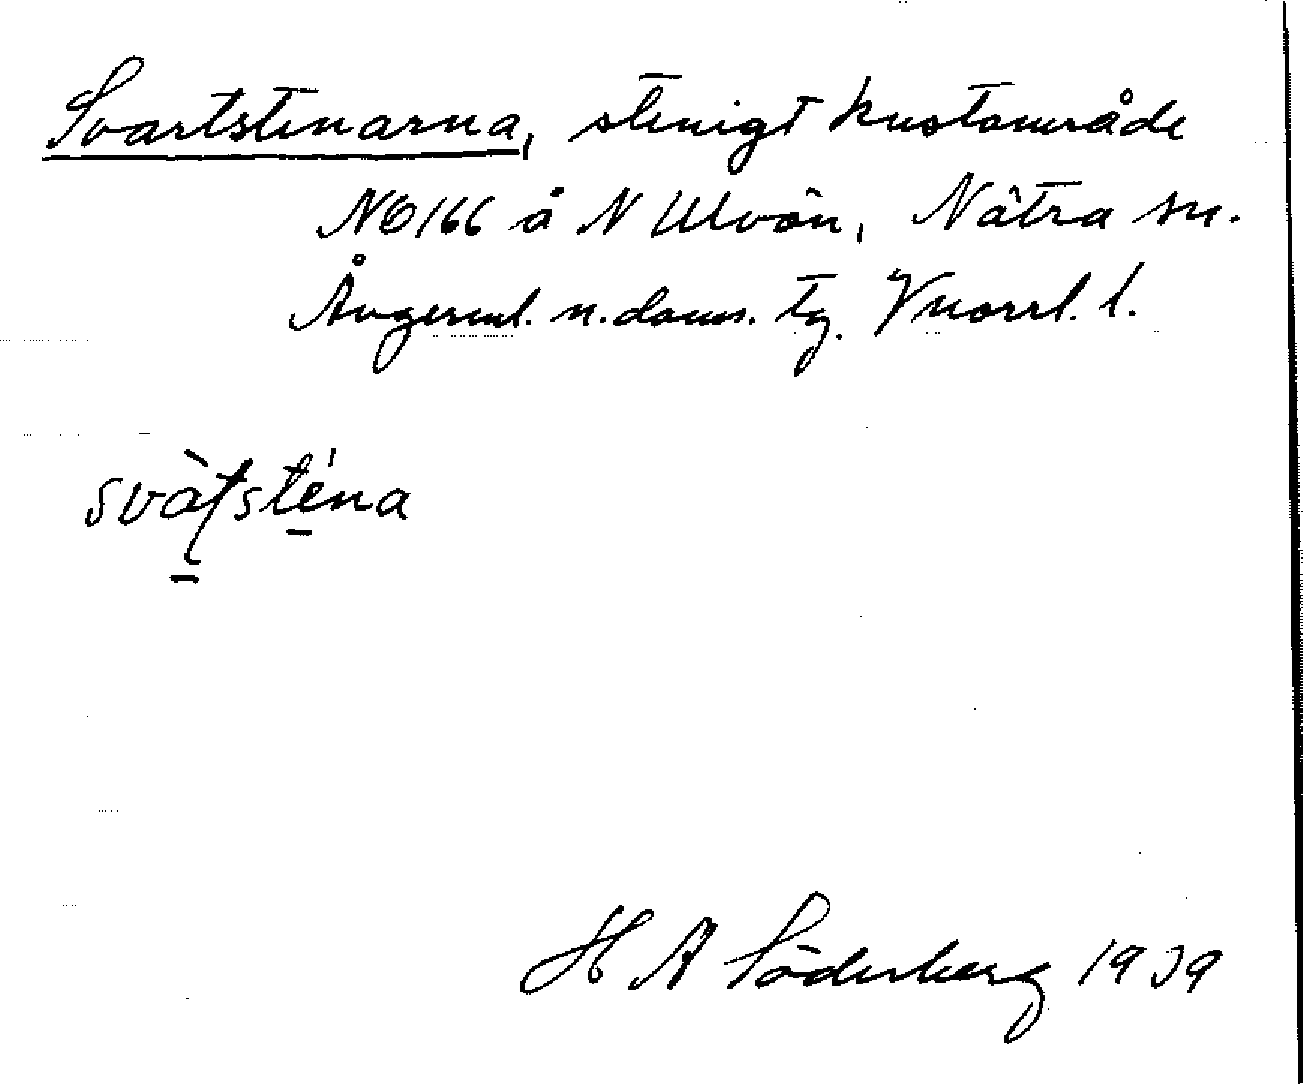 Svartstenarna, stenigt kustområde
NÖ/66 å N Ulvön, Nätra sn.
Ångerml. n. doms. tg. Vnorrl. l.
svàtsténa
H A Söderberg 1939